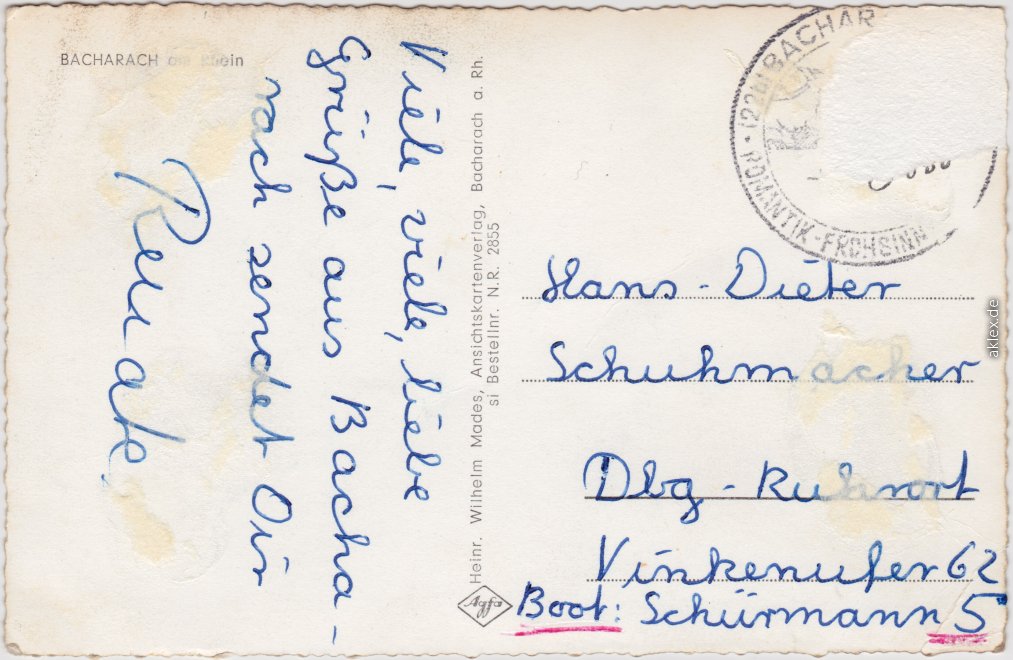 BACHARACH am Rhein
Viele, viele, liebe
Grüße aus Bacha-
rach sendet Dir
Renate.
Heinr. Wilhelm Mades, Ansichtskartenverlag, Bacharach a. Rh.
si Bestellnr. N.R. 2855
Agfa
(22b) BACHAR
ROMANTIK-FROHSINN
Hans-Dieter
Schuhmacher
Dbg-Ruhrort
Vinkenufer 62
Boot: Schürmann 5
aklex.de